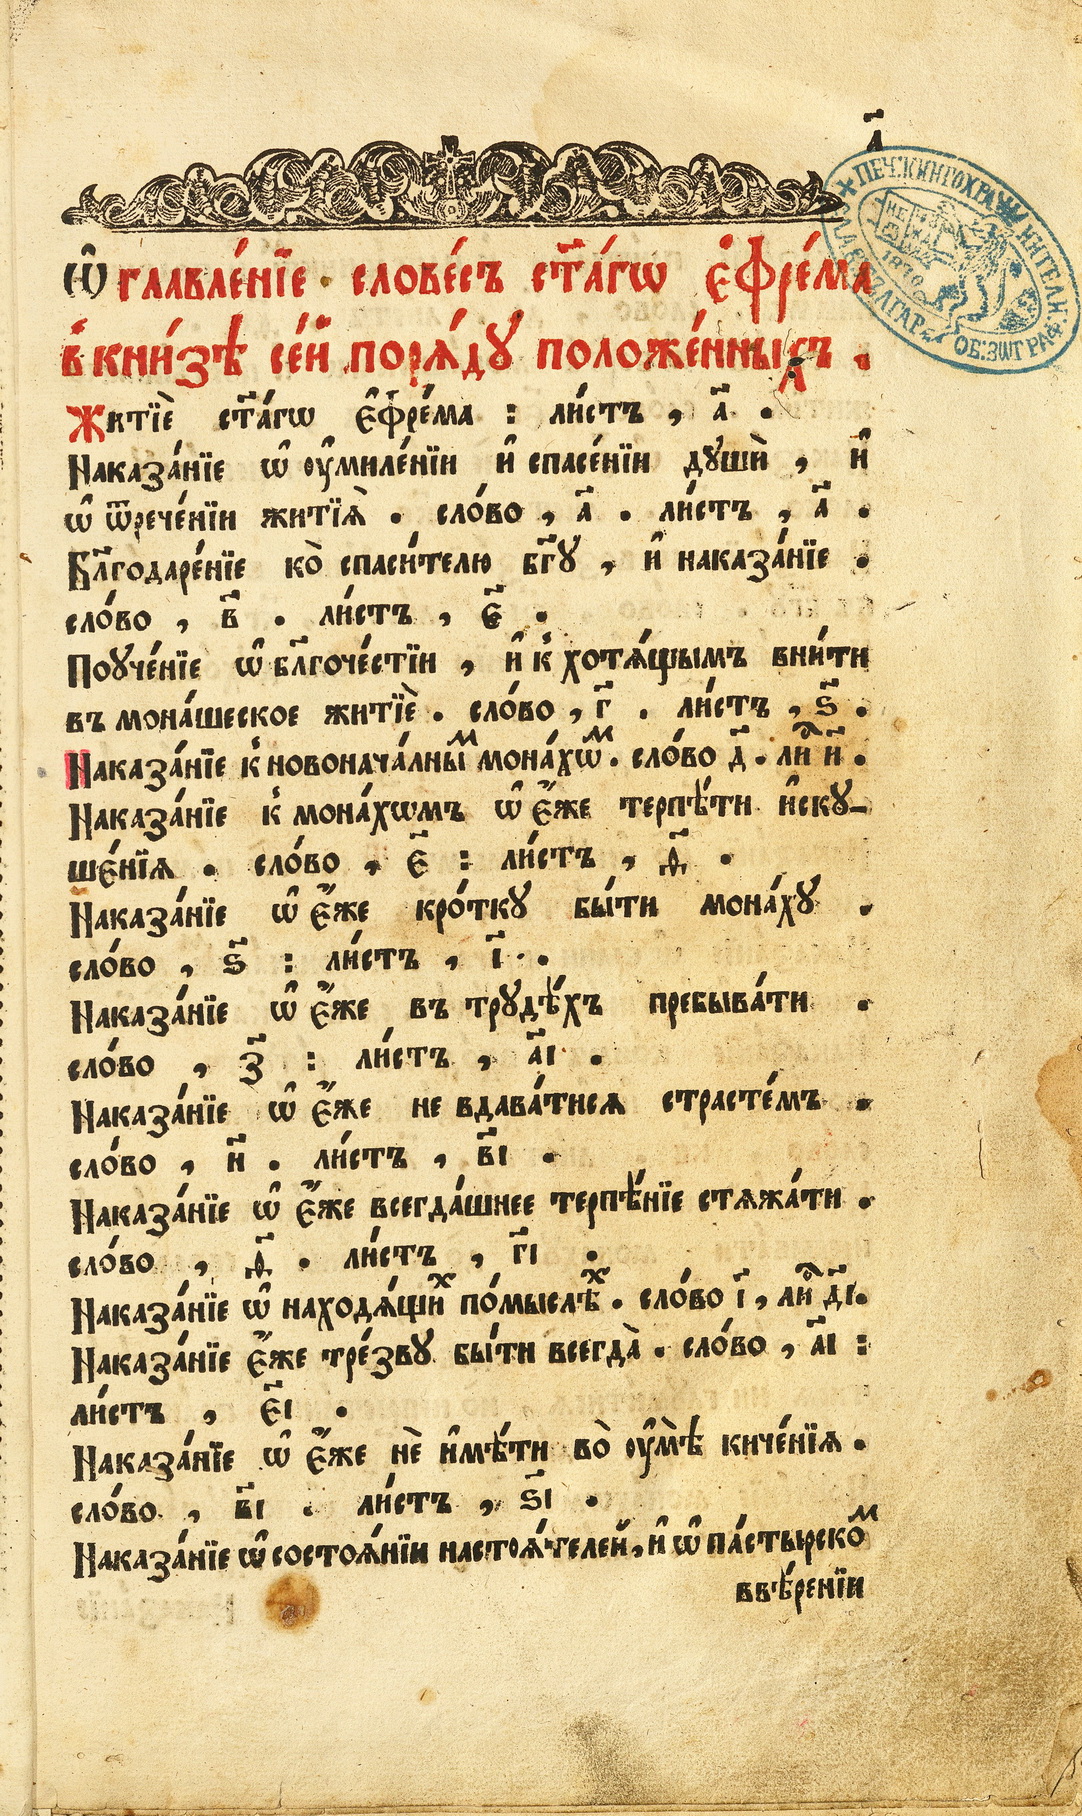 а҃
Ѡ҆главле́нїе слове́съ ст҃а́гѡ є҆фре́ма
в҆ кни́зѣ се́й поря́дꙋ положе́нныхъ .
Житїѐ ст҃а́гѡ є҆фре́ма : ли́стъ , а҃ .
Наказа́нїе ѡ҆ оу҆миле́нїи и҆ спасе́нїи дꙋшѝ , и҆
ѡ҆ ѿрече́нїи житїѧ̀ . сло́во , а҃ . ли́стъ , а҃ .
Бл҃годаре́нїе ко̀ спаси́телю бг҃ꙋ , и҆ наказа́нїе .
сло́во , в҃ . ли́стъ , є҃ .
Поуче́нїе ѡ҆ бл҃гоче́стїи , и҆ к҆ хотѧ́щымъ вни́ти
въ мона́шеское житїѐ . сло́во , г҃ . ли́стъ , ѕ҃ .
Наказа́нїе к҆ новонача́лныⷨ мона́хѡⷨ . сло́во д҃ . лиⷭ҇ и҃ .
Наказа́нїе к҆ мона́хѡмъ ѡ҆ є҆́же терпѣ́ти и҆скꙋ-
ше́нїѧ . сло́во , є҃ : ли́стъ , ѳ҃ .
Наказа́нїе ѡ҆ є҆́же кро́ткꙋ бы́ти мона́хꙋ .
сло́во , ѕ҃ : ли́стъ , і҃ .
Наказа́нїе ѡ҆ є҆́же въ трꙋдѣ́хъ пребыва́ти .
сло́во , з҃ : ли́стъ , а҃і .
Наказа́нїе ѡ҆ є҆́же не вдава́тисѧ страсте́мъ .
сло́во , и҃ . ли́стъ , в҃і .
Наказа́нїе ѡ҆ є҆́же всегда́шнее терпѣ́нїе стѧжа́ти .
сло́во , ѳ҃ . ли́стъ , г҃і .
Наказа́нїе ѡ҆ находѧ́щиⷯ по́мыслѣⷯ . сло́во і҃ , лиⷭ҇ д҃і .
Наказа́нїе є҆́же тре́звꙋ бы́ти всегда̀ . сло́во , а҃і :
ли́стъ , є҃і .
Наказа́нїе ѡ҆ є҆́же нѐ и҆мѣ́ти во̀ оу҆мѣ̀ киче́нїѧ .
сло́во , в҃і . ли́стъ , ѕ҃і .
Наказа́нїе ѡ҆ состоѧ́нїи настоѧ́телей , и҆ ѡ҆ па́стырскоⷨ
ввѣ́ренїи
1870